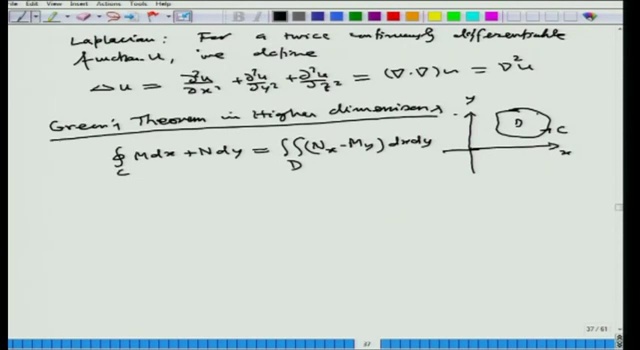 File Edit View Insert Actions Tools Help
Laplacian: For a twice continuously differentiable
function u, we define
Δu = ∂²u/∂x² + ∂²u/∂y² + ∂²u/∂z² = (∇·∇)u = ∇²u
Green's Theorem in Higher dimensions.
∮_C Mdx + Ndy = ∬_D (N_x - M_y) dxdy
y
D
C
x
37 / 61
37